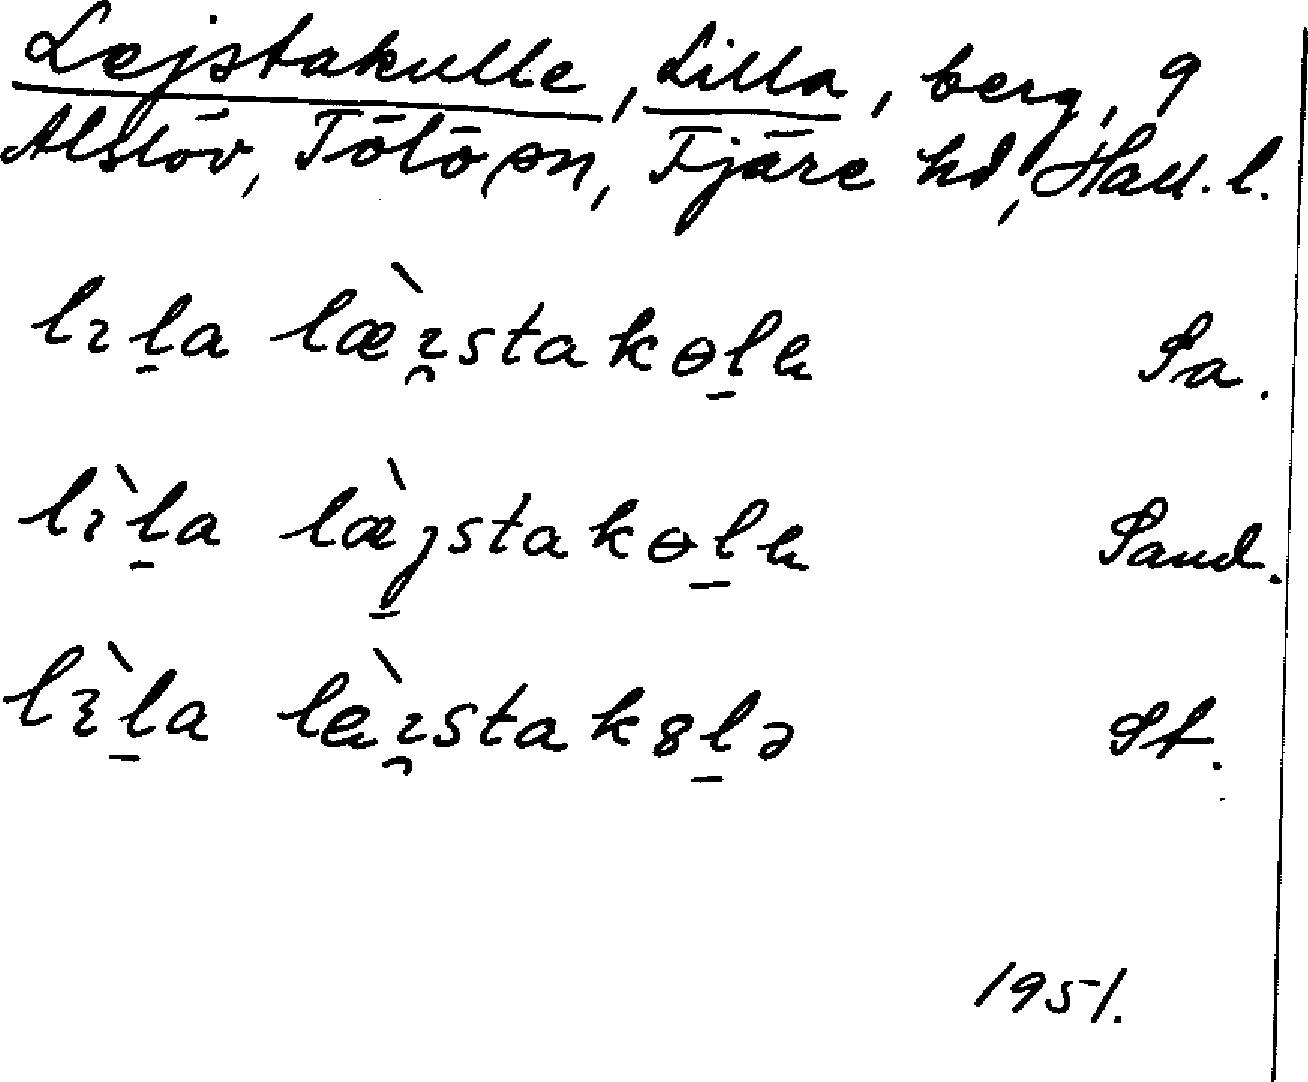 Lejstakulle, Lilla, berg, 9
Alslöv, Tölö sn, Fjäre hd, Hall. l.
lɪl̠a læ̀ɪ̯stakɵl̠e Sa.
lɪ̀l̠a læ̀j̠stakɵl̠e Sand.
lɪ̀l̠a lèɪ̯stak8l̠ə St.
1951.